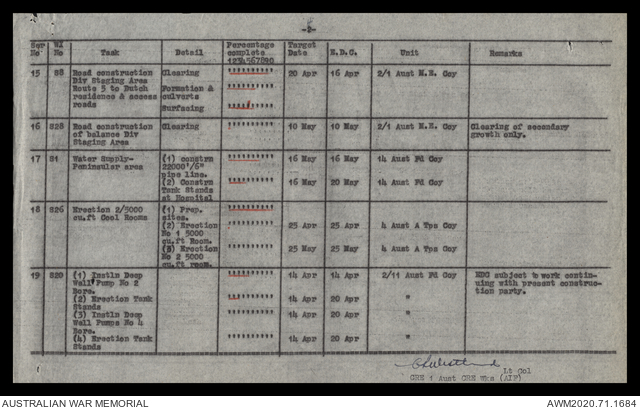 -2-
Ser No WA No Task Detail Percentage complete 1234567890 Target Date E.D.C. Unit Remarks
15 88 Road construction Clearing """""""""" 20 Apr 16 Apr 2/1 Aust M.E. Coy
Div Staging Area
Route 5 to Dutch Formation &
residence & access culverts
roads Surfacing
16 828 Road construction Clearing 10 May 10 May 2/1 Aust M.E. Coy Clearing of secondary
of balance Div growth only.
Staging Area
17 81 Water Supply- (1) constrn 16 May 16 May 14 Aust Fd Coy
Peninsular area 22000'/6"
pipe line.
(2) Constrn 16 May 20 May 14 Aust Fd Coy
Tank Stands
at Hospital
18 826 Erection 2/5000 (1) Prep.
cu.ft Cool Rooms sites.
(2) Erection 25 Apr 25 Apr 4 Aust A Tps Coy
No 1 5000
cu.ft Room.
(3) Erection 25 May 25 May 4 Aust A Tps Coy
No 2 5000
cu.ft room.
19 820 (1) Instln Deep 14 Apr 14 Apr 2/11 Aust Fd Coy EDC subject to work contin-
Well Pump No 2 uing with present construc-
Bore. tion party.
(2) Erection Tank 14 Apr 20 Apr "
Stands
(3) Instln Deep 14 Apr 20 Apr "
Well Pumps No 4
Bore.
(4) Erection Tank 14 Apr 20 Apr "
Stands
Lt Col
CRE 1 Aust CRE Wks (AIF)
AUSTRALIAN WAR MEMORIAL AWM2020.71.1684